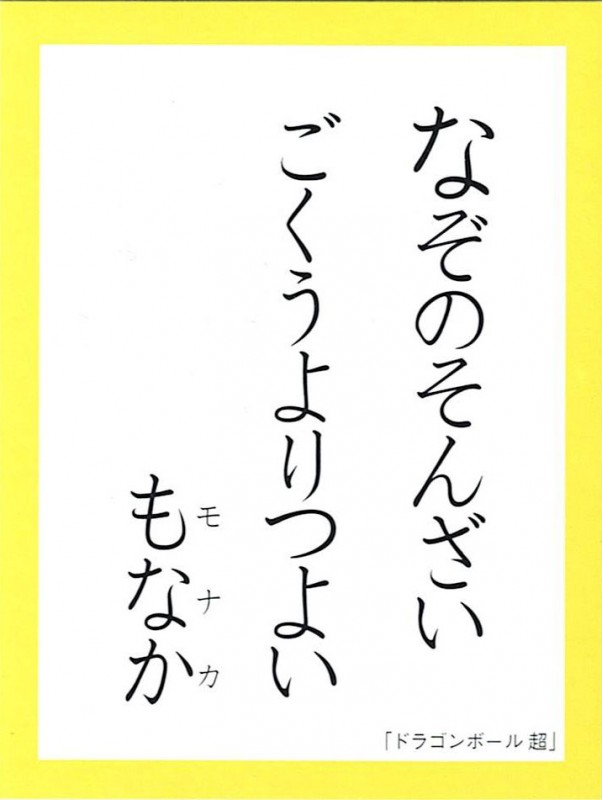 なぞのそんざい
ごくうよりつよい
もなか
モナカ
「ドラゴンボール 超」